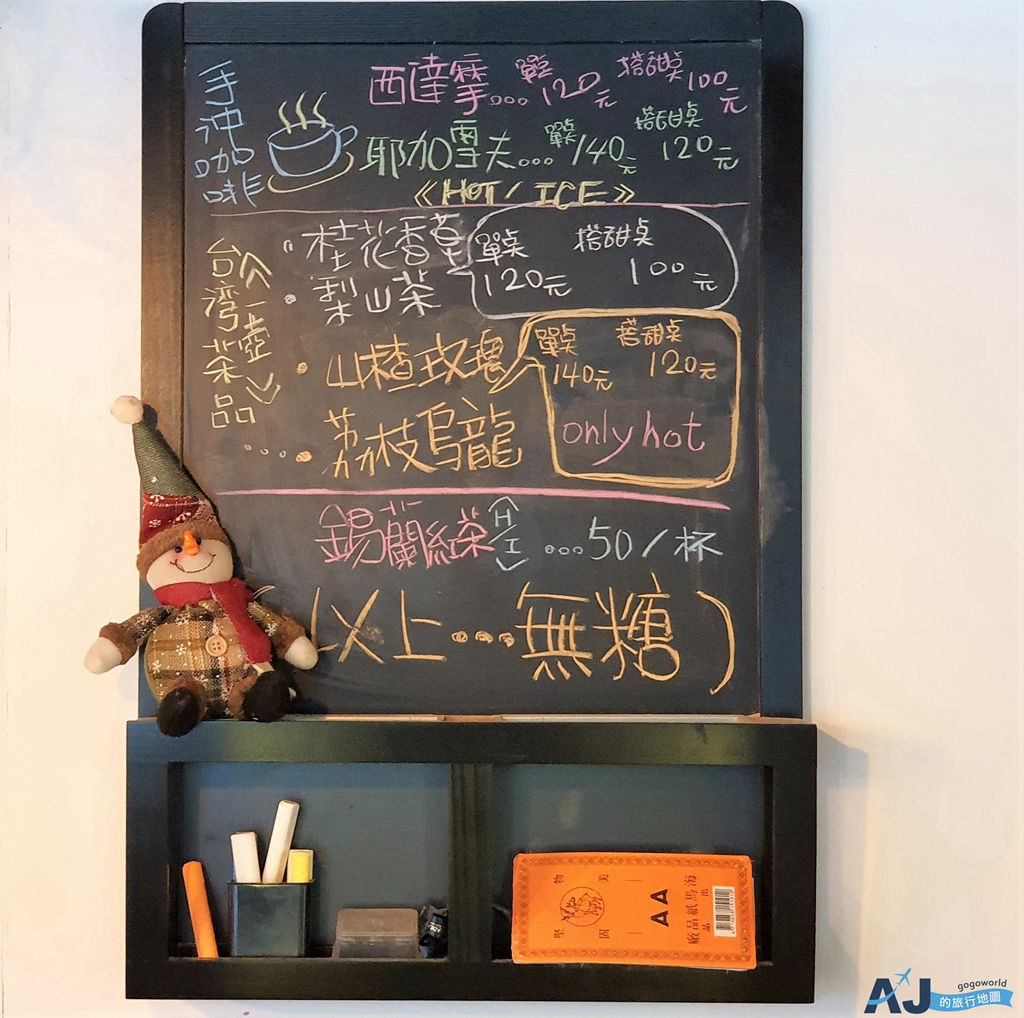 手沖咖啡
西達摩... 單点 120元 搭甜桌 100元
耶加雪夫... 單点 140元 搭甜桌 120元
《HOT/ICE》
台灣茶品
《一壺》
桂花香草
梨山茶
單点 搭甜桌
120元 100元
山楂玫瑰
荔枝烏龍
單点 搭甜桌
140元 120元
only hot
錫蘭紅茶〈H/I〉...50/杯
以上...無糖)
物美
堅固
AA
海馬紙品廠
出品
AJ
gogoworld
的旅行地圖